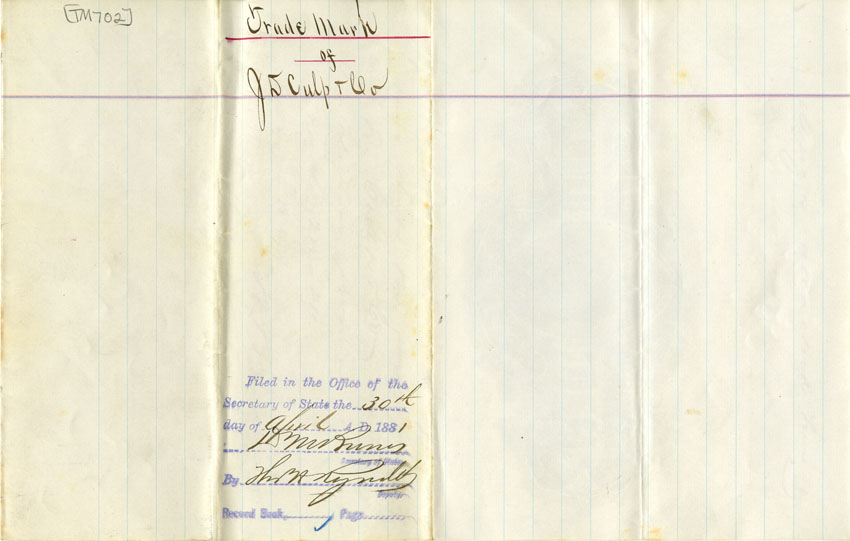 [TM702]
Trade Mark
of
J D Culp & Co
Filed in the Office of the
Secretary of State the 30th
day of April A.D. 1881
Secretary of State
By Thos H Reynolds
Deputy
Record Book, Page